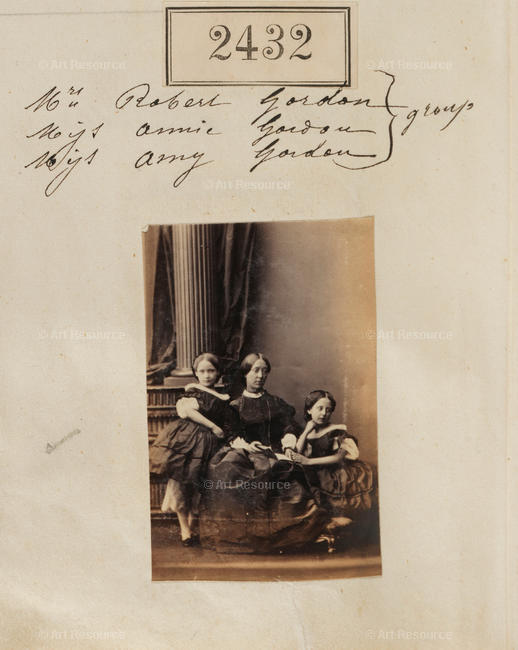 2432
Mrs Robert Gordon
Miss Annie Gordon
Miss Amy Gordon
group
© Art Resource © Art Resource
© Art Resource
© Art Resource © Art Resource
© Art Resource
© Art Resource © Art Resource